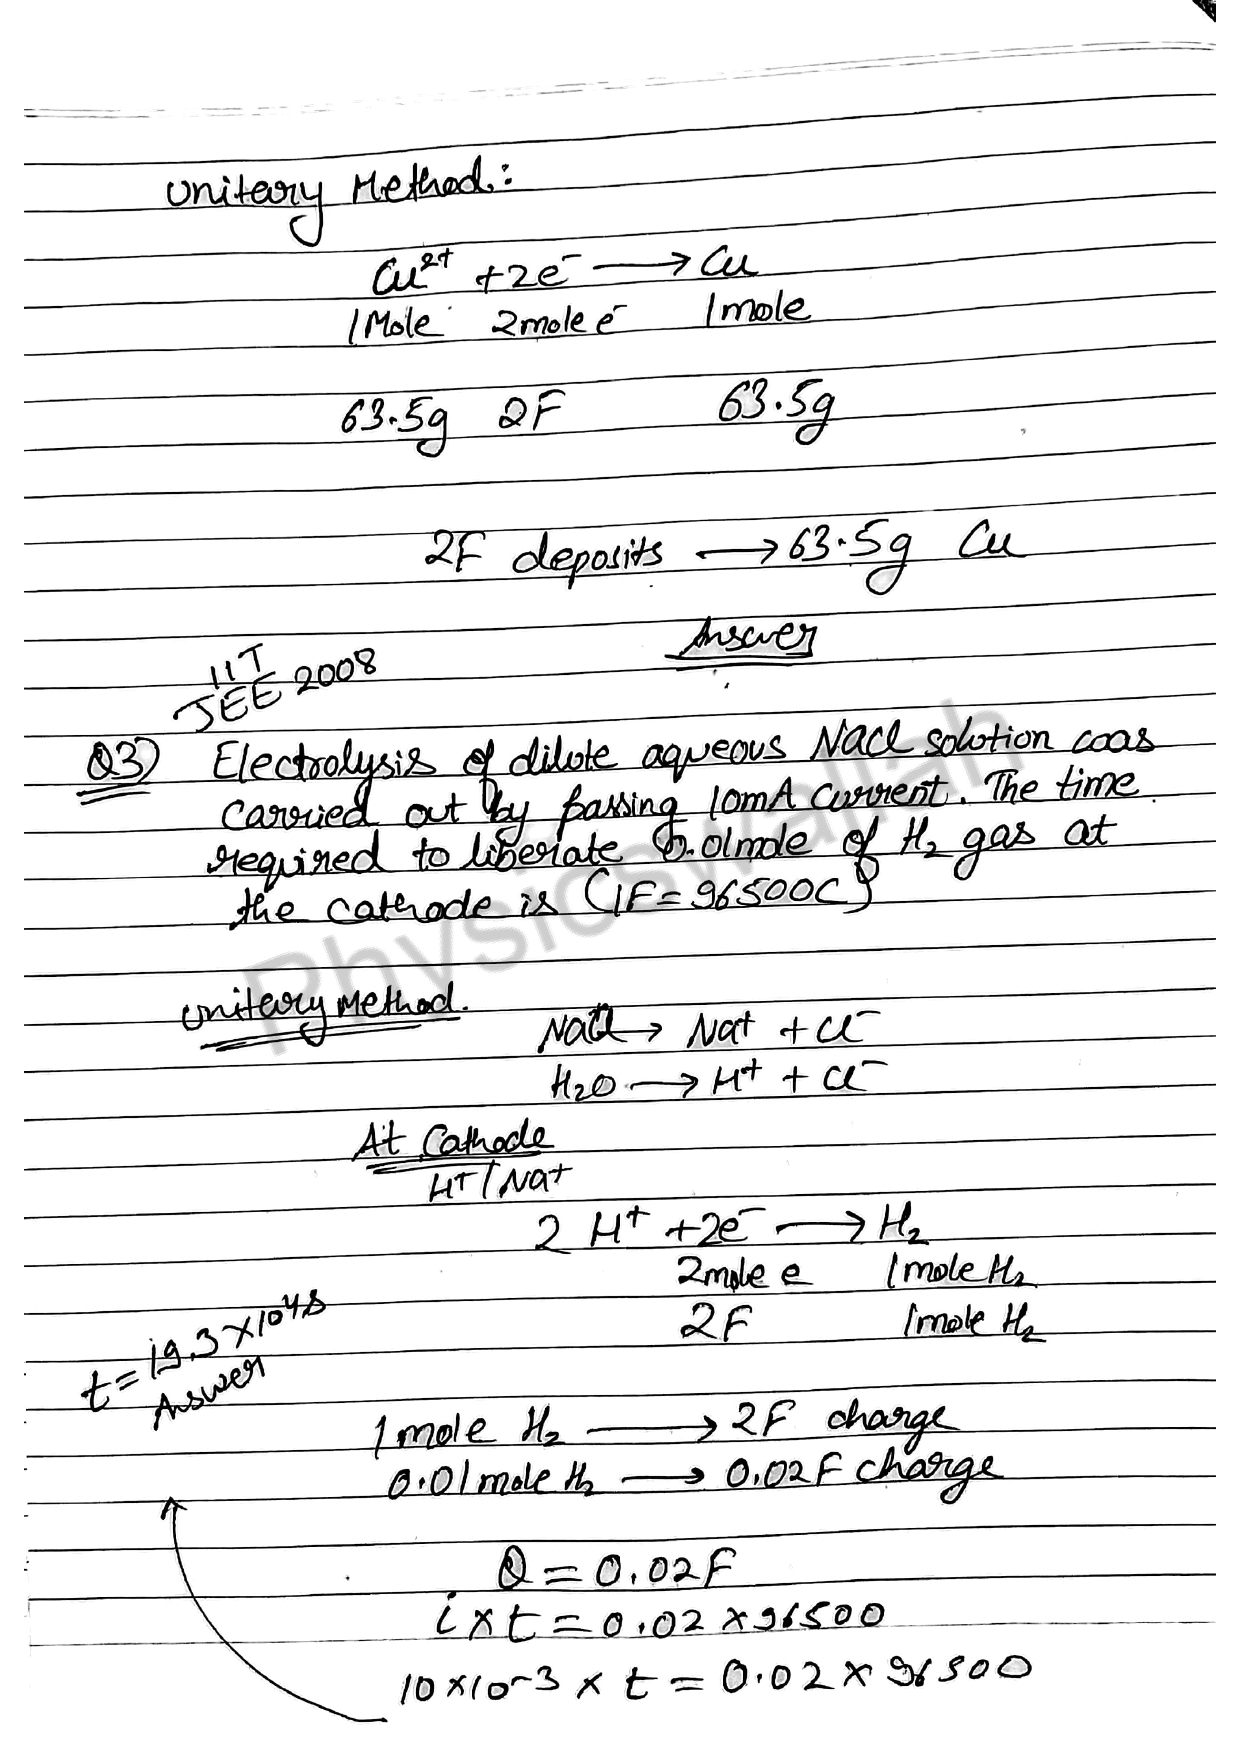 Unitary Method:
Cu²⁺ + 2e⁻ ⟶ Cu
1 Mole 2 mole e⁻ 1 mole
63.5g 2F 63.5g
2F deposits ⟶ 63.5g Cu
Answer
IIT
JEE 2008
Q3) Electrolysis of dilute aqueous NaCl solution was
carried out by passing 10mA current. The time
required to liberate 0.01mole of H₂ gas at
the cathode is (1F = 96500C)
Unitary Method.
NaCl → Na⁺ + Cl⁻
H₂O ⟶ H⁺ + Cl⁻
At Cathode
H⁺ / Na⁺
2 H⁺ + 2e⁻ ⟶ H₂
2 mole e 1 mole H₂
2F 1 mole H₂
t = 19.3 × 10⁴ s
Answer
1 mole H₂ ⟶ 2F charge
0.01 mole H₂ ⟶ 0.02 F charge
Q = 0.02F
i × t = 0.02 × 96500
10 × 10⁻³ × t = 0.02 × 96500
Physicswallah